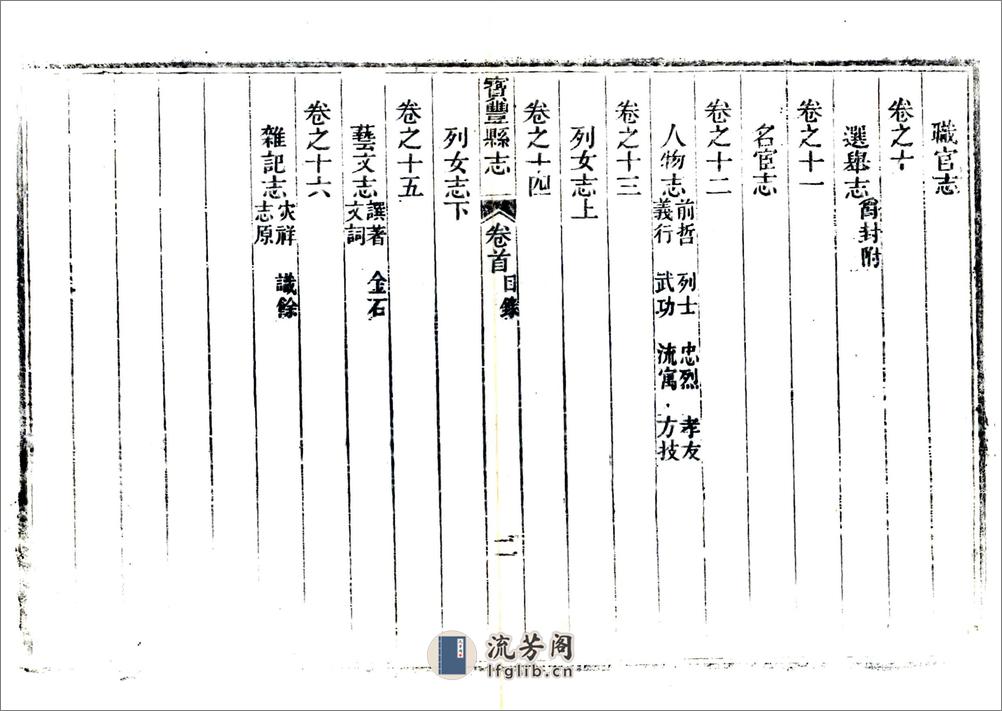 職官志
卷之十
選舉志 爵封附
卷之十一
名宦志
卷之十二
人物志 前哲 列士 忠烈 孝友
義行 武功 流寓 方技
卷之十三
列女志上
卷之十四
寶豐縣志 卷首 目錄 二
列女志下
卷之十五
藝文志 譔著 金石
文詞
卷之十六
雜記志 灾祥 識餘
志原
流芳阁
lfglib.cn